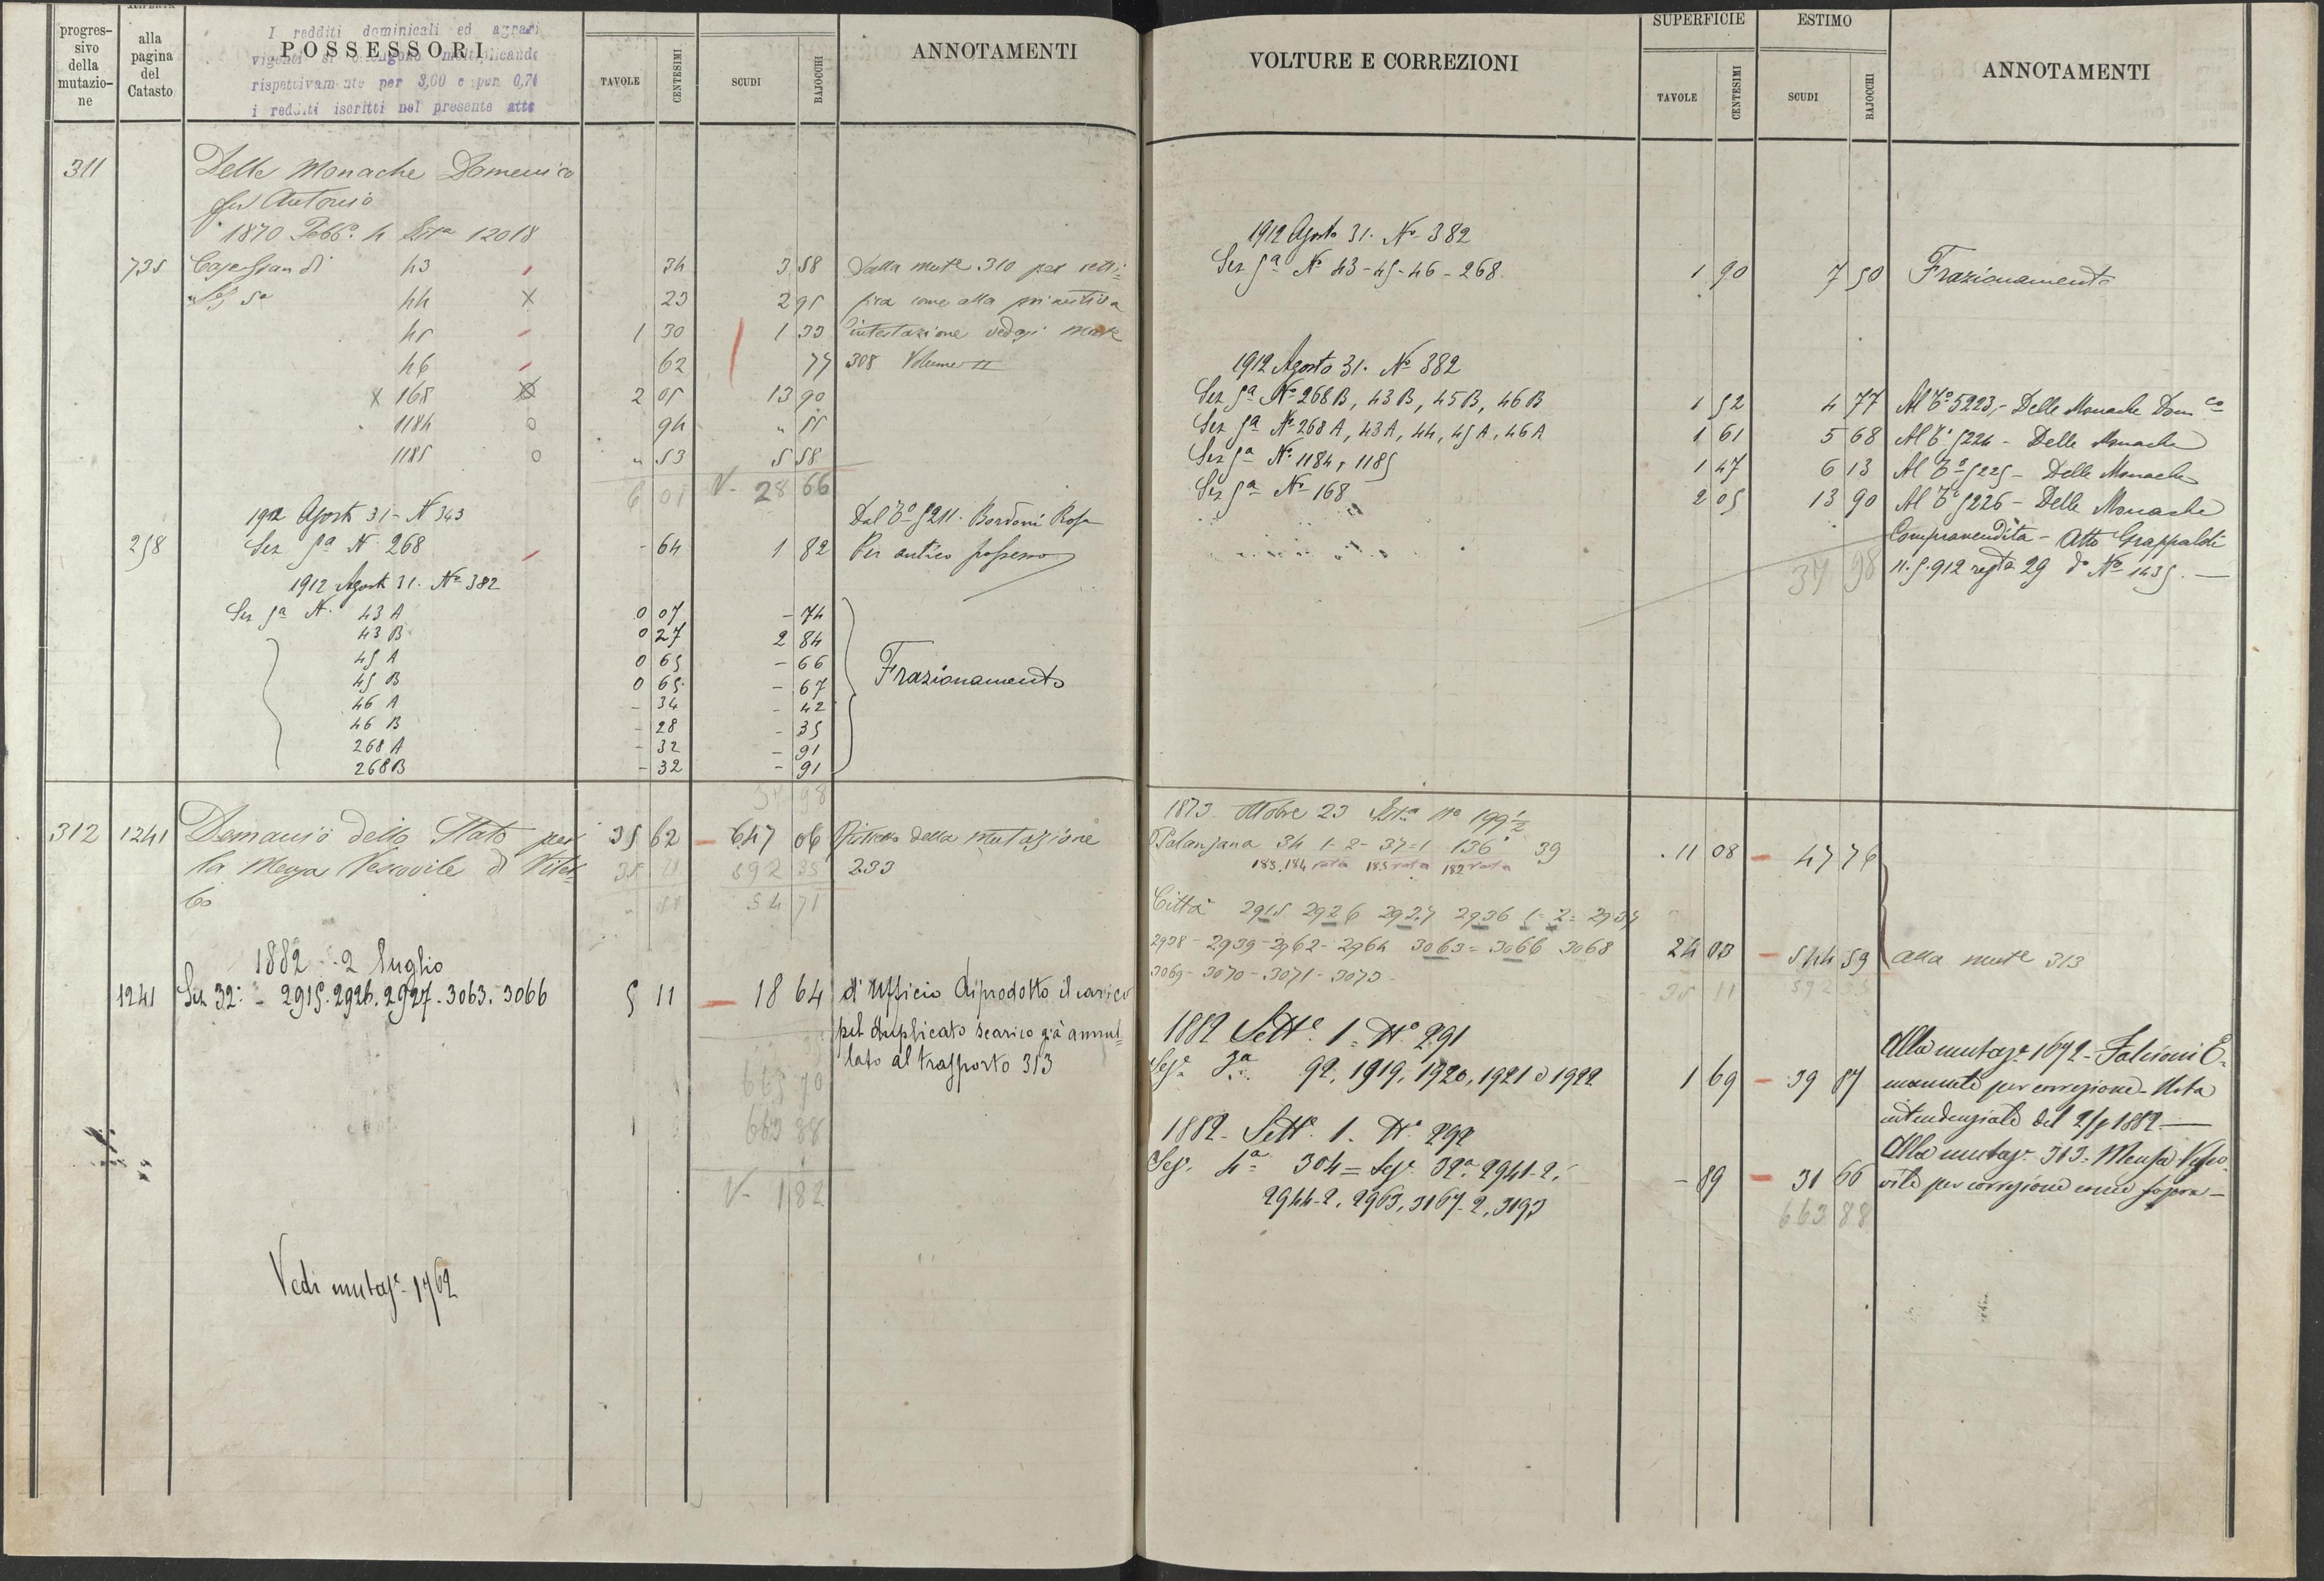 progres-
sivo
della
mutazio-
ne
alla
pagina
del
Catasto
POSSESSORI
I redditi dominicali ed agrari
vigenti si ottengono moltiplicando
rispettivamente per 3,00 e per 0,70
i redditi iscritti nel presente atto
TAVOLE
CENTESIMI
SCUDI
BAJOCCHI
ANNOTAMENTI
311 Delle Monache Domenico
fu Antonio
1870 Febb.o 4 12018
735 43 34 3 58 Dalla mut.e 310 per retti=
Sez 5a 44 X 23 2 95 fica come alla primitiva
45 1 30 1 33 intestazione vedasi mut.e
46 62 77 308 Volume II
X 168 2 05 13 90
1184 0 94 " 55
1185 0 " 53 5 58
6 01 V- 28 66
1912 Agosto 31 - N 343 Dal T.o 5211. Bordoni Rosa
258 Sez 5a N. 268 - 64 1 82 Per antico possesso
1912 Agosto 31. No 382
Sez 5a N. 43 A 0 07 - 74
43 B 0 27 2 84
45 A 0 65 - 66
45 B 0 65 - 67 Frazionamento
46 A - 34 - 42
46 B - 28 - 35
268 A - 32 - 91
268 B - 32 - 91
34 98
312 1241 Demanio dello Stato per 35 62 - 647 06 della mutazione
la Mensa Vescovile di Viter- 35 11 592 35 233
bo 54 71
1882 - 2 Luglio
1241 Sez 32: - 2915. 2926. 2927 - 3063. 3066 5 11 - 18 64 d'Ufficio Riprodotto il carico
pel duplicato scarico già annul=
lato al trasporto 313
665 70
663 88
V- 1 82
Vedi mutaz.e 1762
VOLTURE E CORREZIONI
SUPERFICIE
ESTIMO
TAVOLE
CENTESIMI
SCUDI
BAJOCCHI
ANNOTAMENTI
1912 Agosto 31. No 382
Sez 5a No 43-45-46-268 1 90 7 50 Frazionamento
1912 Agosto 31. No 382
Sez 5a No 268B, 43B, 45B, 46B 1 52 4 77 Al T.o 5223,- Delle Monache Dom.co
Sez 5a No 268A, 43A, 44, 45A, 46A 1 61 5 68 Al T.o 5224 - Delle Monache
Sez 5a No 1184, 1185 1 47 6 13 Al T.o 5225 - Delle Monache
Sez 5a No 168 2 05 13 90 Al T.o 5226 - Delle Monache
Compravendita - Atto Grappaldi
37 98 11.5.912 regta 29 do No 1435.-
1873 Ottobre 23 No 199 1/2
Palanzana 34 1-2-37=1 136 39 11 08 - 47 76
183.184 rata 185 rata 182 rata
Città 2915 2926 2927 2936 1-2= 2937
2938 - 2939 - 2962 - 2964 3063= 3066 3068 24 03 - 544 59 alla mut.e 313
3069 - 3070 - 3071 - 3073 -
35 11 592 35
1882 Sett.e 1. No 291
Sez.e 3a 92, 1919, 1920, 1921 e 1922 1 69 - 39 87
Alla mutaz.e 1692 - Falcioni E-
manuele per correzione - Nota
intendenziale del 1882 -
1882 - Sett.e 1. No 292
Sez. 4a 304 = Sez. 32a 2941-2, - 89 - 31 66
2944-2, 2963, 3167-2, 3193
Alla mutaz.e 313. Mensa Vesco-
vile per correzione come sopra -
663 88